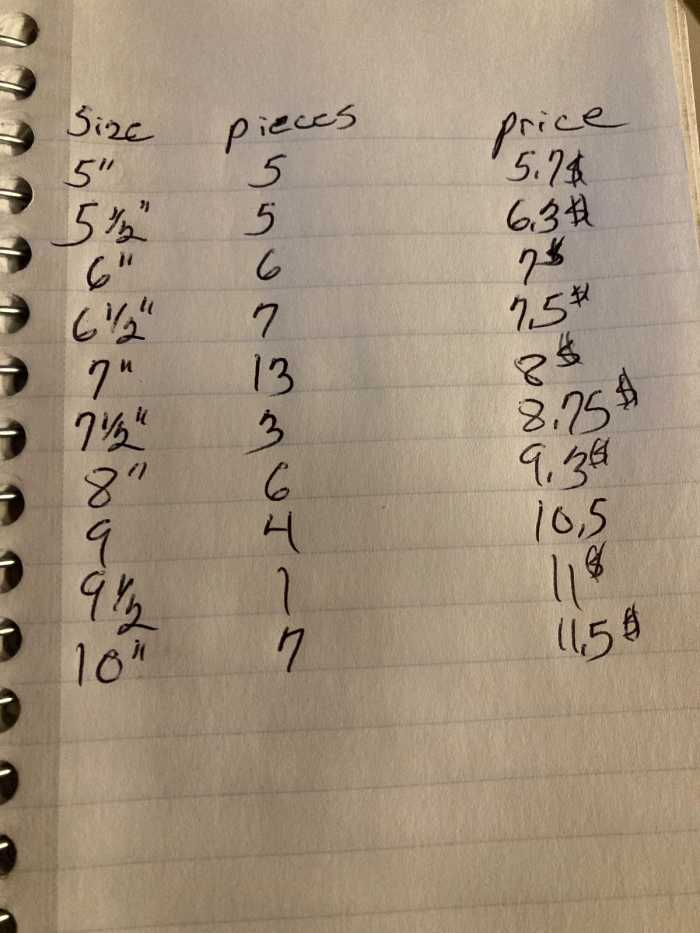 Size pieces price
5" 5 5.7$
5 1/2" 5 6.3$
6" 6 7$
6 1/2" 7 7,5$
7" 13 8$
7 1/2" 3 8.75$
8" 6 9.3$
9 4 10,5
9 1/2 1 11$
10" 7 11.5$